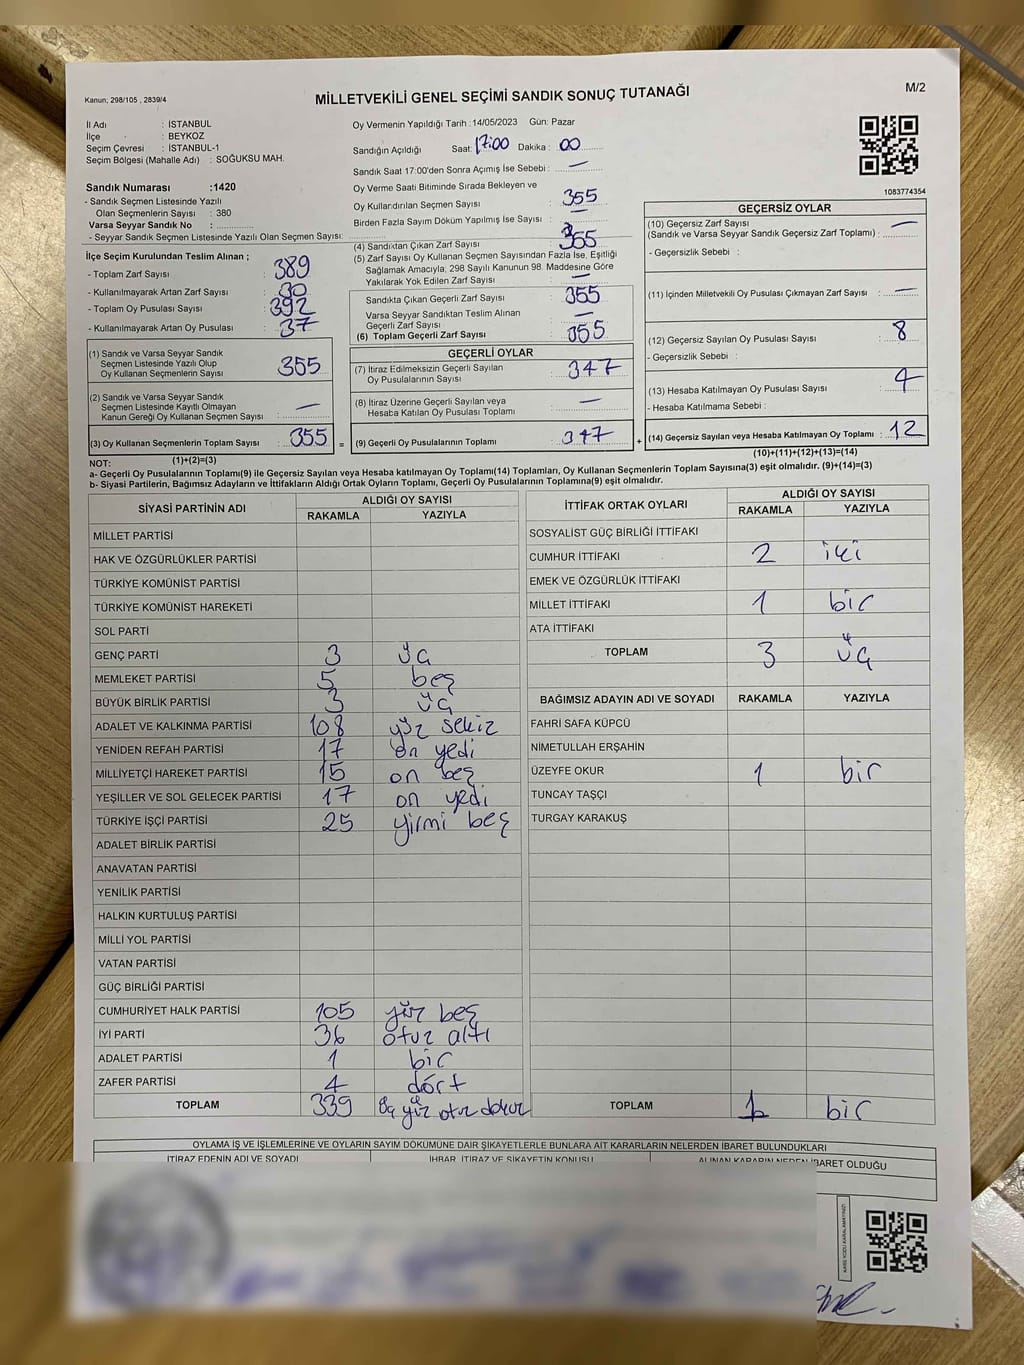 Kanun; 298/105 , 2839/4
MİLLETVEKİLİ GENEL SEÇİMİ SANDIK SONUÇ TUTANAĞI
M/2
İl Adı : İSTANBUL
İlçe : BEYKOZ
Seçim Çevresi : İSTANBUL-1
Seçim Bölgesi (Mahalle Adı) : SOĞUKSU MAH.
Sandık Numarası :1420
- Sandık Seçmen Listesinde Yazılı
Olan Seçmenlerin Sayısı : 380
Varsa Seyyar Sandık No :
- Seyyar Sandık Seçmen Listesinde Yazılı Olan Seçmen Sayısı:
İlçe Seçim Kurulundan Teslim Alınan ;
- Toplam Zarf Sayısı : 389
- Kullanılmayarak Artan Zarf Sayısı : 30
- Toplam Oy Pusulası Sayısı : 392
- Kullanılmayarak Artan Oy Pusulası : 37
(1) Sandık ve Varsa Seyyar Sandık
Seçmen Listesinde Yazılı Olup
Oy Kullanan Seçmenlerin Sayısı : 355
(2) Sandık ve Varsa Seyyar Sandık
Seçmen Listesinde Kayıtlı Olmayan
Kanun Gereği Oy Kullanan Seçmen Sayısı : —
(3) Oy Kullanan Seçmenlerin Toplam Sayısı : 355 =
(1)+(2)=(3)
Oy Vermenin Yapıldığı Tarih :14/05/2023 Gün: Pazar
Sandığın Açıldığı Saat: 17:00 Dakika : 00
Sandık Saat 17:00'den Sonra Açımış İse Sebebi : —
Oy Verme Saati Bitiminde Sırada Bekleyen ve
Oy Kullandırılan Seçmen Sayısı : 355
Birden Fazla Sayım Döküm Yapılmış İse Sayısı : —
(4) Sandıktan Çıkan Zarf Sayısı : 355
(5) Zarf Sayısı Oy Kullanan Seçmen Sayısından Fazla İse, Eşitliği
Sağlamak Amacıyla; 298 Sayılı Kanunun 98. Maddesine Göre
Yakılarak Yok Edilen Zarf Sayısı : —
Sandıkta Çıkan Geçerli Zarf Sayısı : 355
Varsa Seyyar Sandıktan Teslim Alınan
Geçerli Zarf Sayısı : —
(6) Toplam Geçerli Zarf Sayısı : 355
GEÇERLİ OYLAR
(7) İtiraz Edilmeksizin Geçerli Sayılan
Oy Pusulalarının Sayısı : 347
(8) İtiraz Üzerine Geçerli Sayılan veya
Hesaba Katılan Oy Pusulası Toplamı : —
(9) Geçerli Oy Pusulalarının Toplamı : 347 +
1083774354
GEÇERSİZ OYLAR
(10) Geçersiz Zarf Sayısı
(Sandık ve Varsa Seyyar Sandık Geçersiz Zarf Toplamı) : —
- Geçersizlik Sebebi :
(11) İçinden Milletvekili Oy Pusulası Çıkmayan Zarf Sayısı : —
(12) Geçersiz Sayılan Oy Pusulası Sayısı : 8
- Geçersizlik Sebebi :
(13) Hesaba Katılmayan Oy Pusulası Sayısı : 4
- Hesaba Katılmama Sebebi :
(14) Geçersiz Sayılan veya Hesaba Katılmayan Oy Toplamı : 12
(10)+(11)+(12)+(13)=(14)
NOT:
a- Geçerli Oy Pusulalarının Toplamı(9) ile Geçersiz Sayılan veya Hesaba katılmayan Oy Toplamı(14) Toplamları, Oy Kullanan Seçmenlerin Toplam Sayısına(3) eşit olmalıdır. (9)+(14)=(3)
b- Siyasi Partilerin, Bağımsız Adayların ve İttifakların Aldığı Ortak Oyların Toplamı, Geçerli Oy Pusulalarının Toplamına(9) eşit olmalıdır.
SİYASİ PARTİNİN ADI ALDIĞI OY SAYISI
RAKAMLA YAZIYLA
MİLLET PARTİSİ
HAK VE ÖZGÜRLÜKLER PARTİSİ
TÜRKİYE KOMÜNİST PARTİSİ
TÜRKİYE KOMÜNİST HAREKETİ
SOL PARTİ
GENÇ PARTİ 3 üç
MEMLEKET PARTİSİ 5 beş
BÜYÜK BİRLİK PARTİSİ 3 üç
ADALET VE KALKINMA PARTİSİ 108 yüz sekiz
YENİDEN REFAH PARTİSİ 17 on yedi
MİLLİYETÇİ HAREKET PARTİSİ 15 on beş
YEŞİLLER VE SOL GELECEK PARTİSİ 17 on yedi
TÜRKİYE İŞÇİ PARTİSİ 25 yirmi beş
ADALET BİRLİK PARTİSİ
ANAVATAN PARTİSİ
YENİLİK PARTİSİ
HALKIN KURTULUŞ PARTİSİ
MİLLİ YOL PARTİSİ
VATAN PARTİSİ
GÜÇ BİRLİĞİ PARTİSİ
CUMHURİYET HALK PARTİSİ 105 yüz beş
İYİ PARTİ 36 otuz altı
ADALET PARTİSİ 1 bir
ZAFER PARTİSİ 4 dört
TOPLAM 339 üç yüz otuz dokuz
İTTİFAK ORTAK OYLARI ALDIĞI OY SAYISI
RAKAMLA YAZIYLA
SOSYALİST GÜÇ BİRLİĞİ İTTİFAKI
CUMHUR İTTİFAKI 2 iki
EMEK VE ÖZGÜRLÜK İTTİFAKI
MİLLET İTTİFAKI 1 bir
ATA İTTİFAKI
TOPLAM 3 üç
BAĞIMSIZ ADAYIN ADI VE SOYADI RAKAMLA YAZIYLA
FAHRİ SAFA KÜPCÜ
NİMETULLAH ERŞAHİN
ÜZEYFE OKUR 1 bir
TUNCAY TAŞÇI
TURGAY KARAKUŞ
TOPLAM 1 bir
OYLAMA İŞ VE İŞLEMLERİNE VE OYLARIN SAYIM DÖKÜMÜNE DAİR ŞİKAYETLERLE BUNLARA AİT KARARLARIN NELERDEN İBARET BULUNDUKLARI
İTİRAZ EDENİN ADI VE SOYADI İHBAR, İTİRAZ VE ŞİKAYETİN KONUSU ALINAN KARARIN NEDEN İBARET OLDUĞU